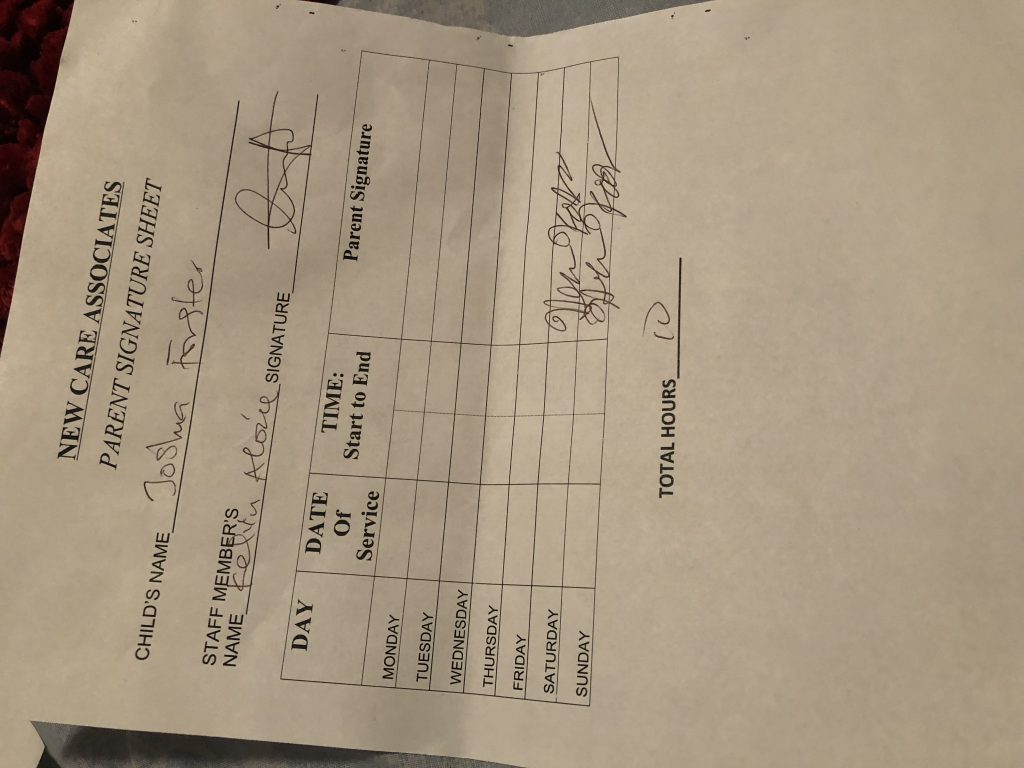 NEW CARE ASSOCIATES
PARENT SIGNATURE SHEET
CHILD'S NAME Joshua Forster
STAFF MEMBER'S
NAME SIGNATURE
DAY DATE Of Service TIME: Start to End Parent Signature
MONDAY
TUESDAY
WEDNESDAY
THURSDAY
FRIDAY
SATURDAY
SUNDAY
TOTAL HOURS 10